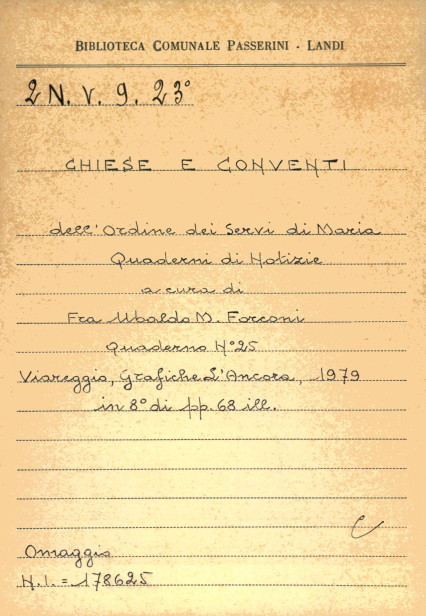 BIBLIOTECA COMUNALE PASSERINI - LANDI
2 N. V. 9. 23°
CHIESE E CONVENTI
dell'Ordine dei Servi di Maria
Quaderni di Notizie
a cura di
Fra Ubaldo M. Forconi
Quaderno N°25
Viareggio, Grafiche L'Ancora, 1979
in 8° di pp. 68 ill.
C
Omaggio
N.I. = 178625